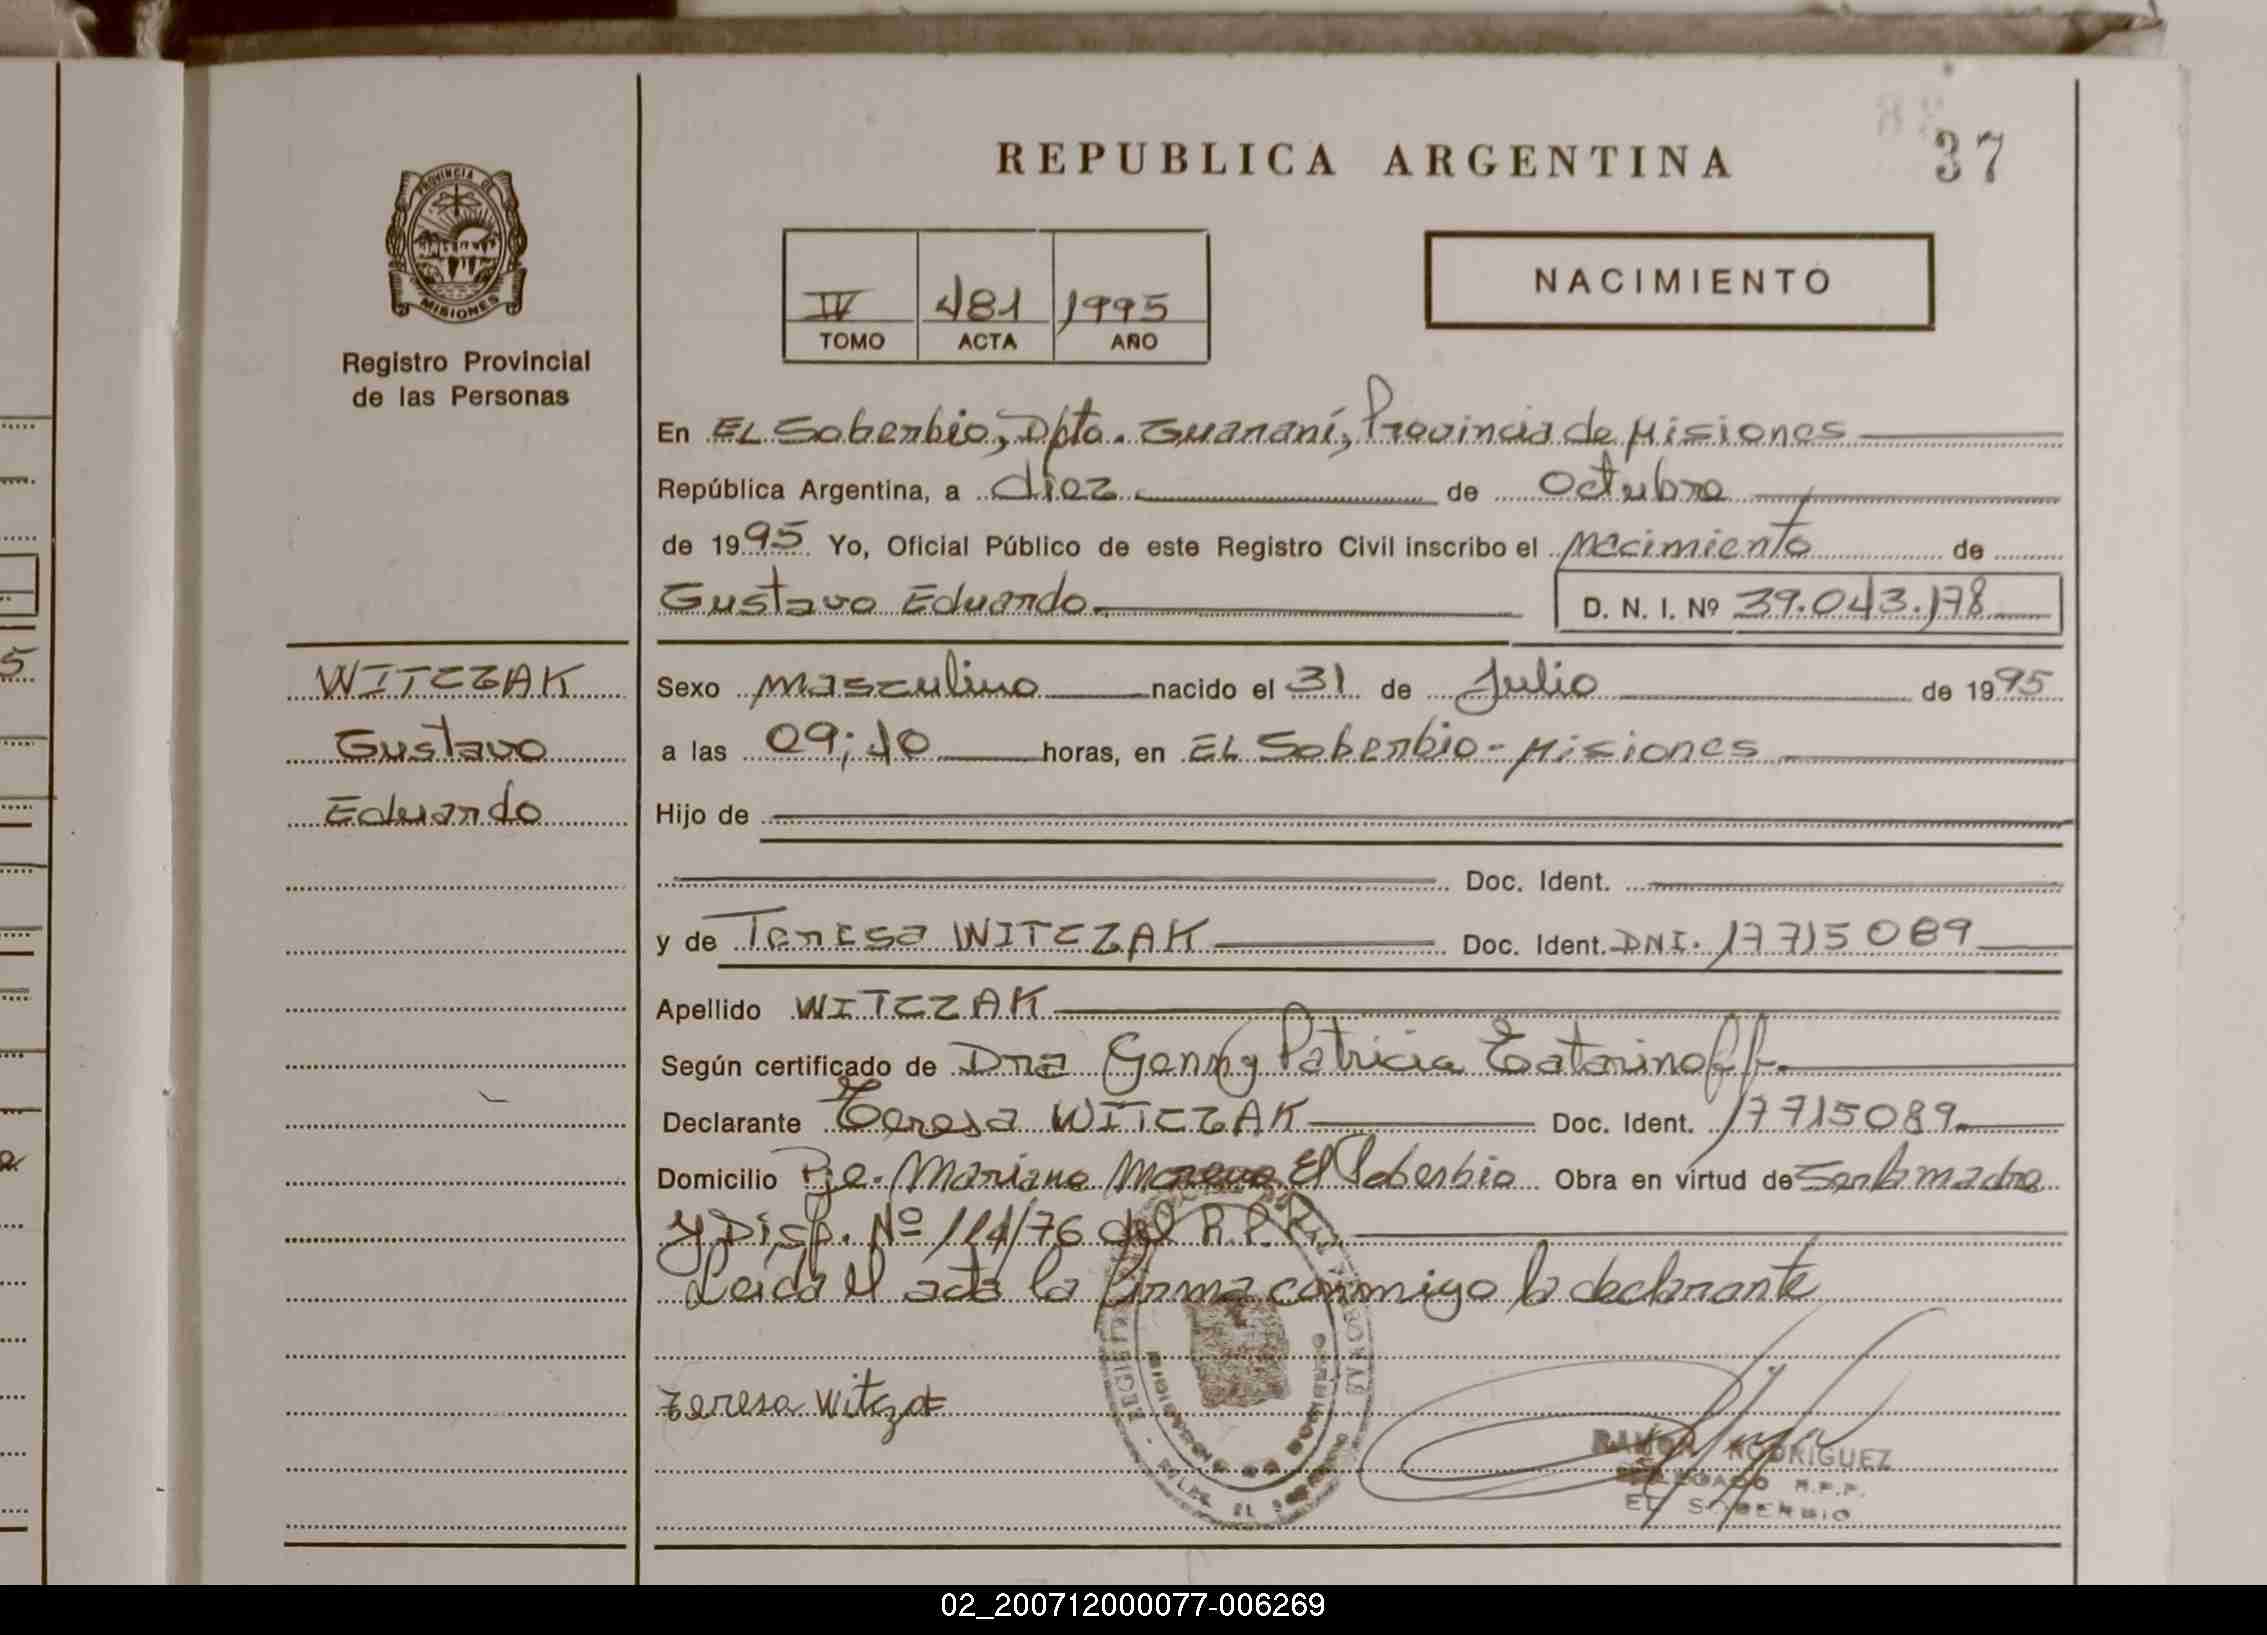 37
REPUBLICA ARGENTINA
PROVINCIA DE
MISIONES
Registro Provincial
de las Personas
NACIMIENTO
IV 481 1995
TOMO ACTA AÑO
En EL Soberbio, Dpto. Guaraní, Provincia de Misiones
República Argentina, a diez de Octubre
de 1995 Yo, Oficial Público de este Registro Civil inscribo el Nacimiento de
Gustavo Eduardo. D. N. I. Nº 39.043.178
WITCZAK
Gustavo
Eduardo
Sexo Masculino nacido el 31 de Julio de 1995
a las 09;10 horas, en EL Soberbio - Misiones
Hijo de
Doc. Ident.
y de Teresa WITCZAK Doc. Ident. DNI. 17715089
Apellido WITCZAK
Según certificado de Dra Genny Patricia Tatarinoff.
Declarante Teresa WITCZAK Doc. Ident. 17715089
Domicilio Pje. Mariano Moreno El Soberbio Obra en virtud de Ser la madre
y Disp. Nº 114/76 del R.P.P.
Leída el acta la firma conmigo la declarante
Teresa Witczak
RAMON RODRIGUEZ
DELEGADO R.P.P.
EL SOBERBIO
02_200712000077-006269